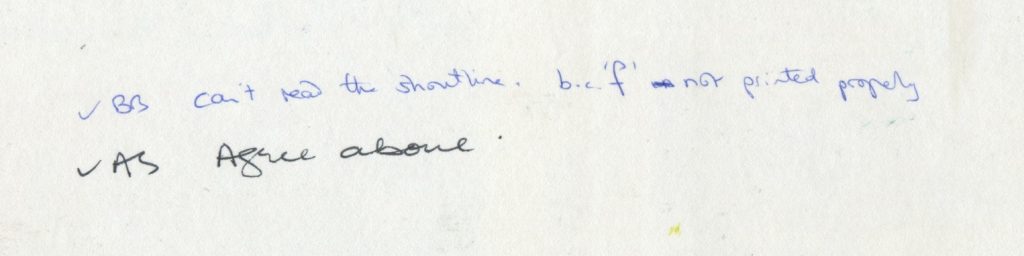 ✓ BB can't read the shoutline. b.c. 'f' not printed properly
✓ AS Agree above.